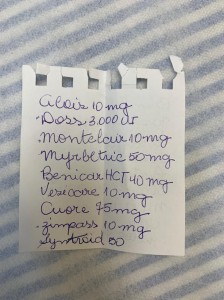 Alois 10 mg
.Doss 3.000 UI
.Montelair 10 mg
Myrbetric 50 mg
Benicar HCT 40 mg
Vesicare 10 mg
Cuore 75 mg
.Zimpass 10 mg
Syntroid 50